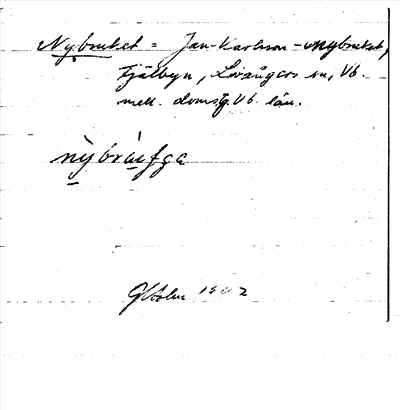 Nybruket = Jan-Karlsson-Nybruket,
Fjälbyn, Lövångers sn, Vb.
mell. doms. Vb. län.
GHolm 1942